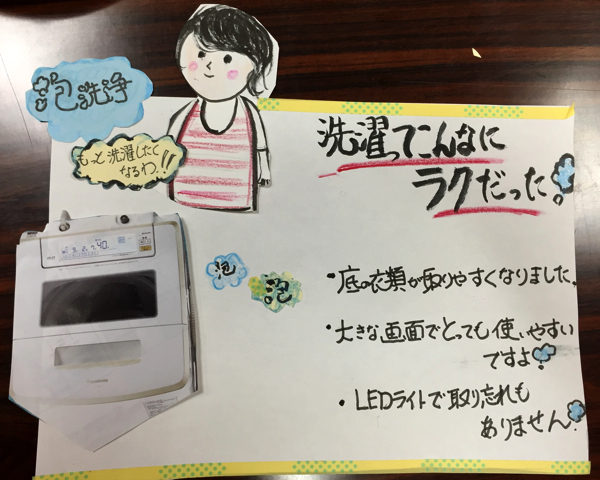 泡洗浄
もっと洗濯したく
なるわ!!
洗濯ってこんなに
ラクだった!
40
泡
泡
・底の衣類が取りやすくなりました。
・大きな画面でとっても使いやすい
ですよ!
・LEDライトで取り忘れも
ありません!